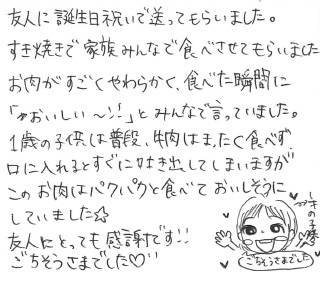 友人に誕生日祝いで送ってもらいました。
すき焼きで家族みんなで食べさせてもらいました
お肉がすごくやわらかく、食べた瞬間に
「おいしい〜!!」とみんなで言っていました。
1歳の子供は普段、牛肉はまったく食べず
口に入れるとすぐに吐き出してしまいますが
このお肉はパクパクと食べておいしそうに
していました☆
友人にとっても感謝です!!
ごちそうさまでした♡
ごちそうさまでした